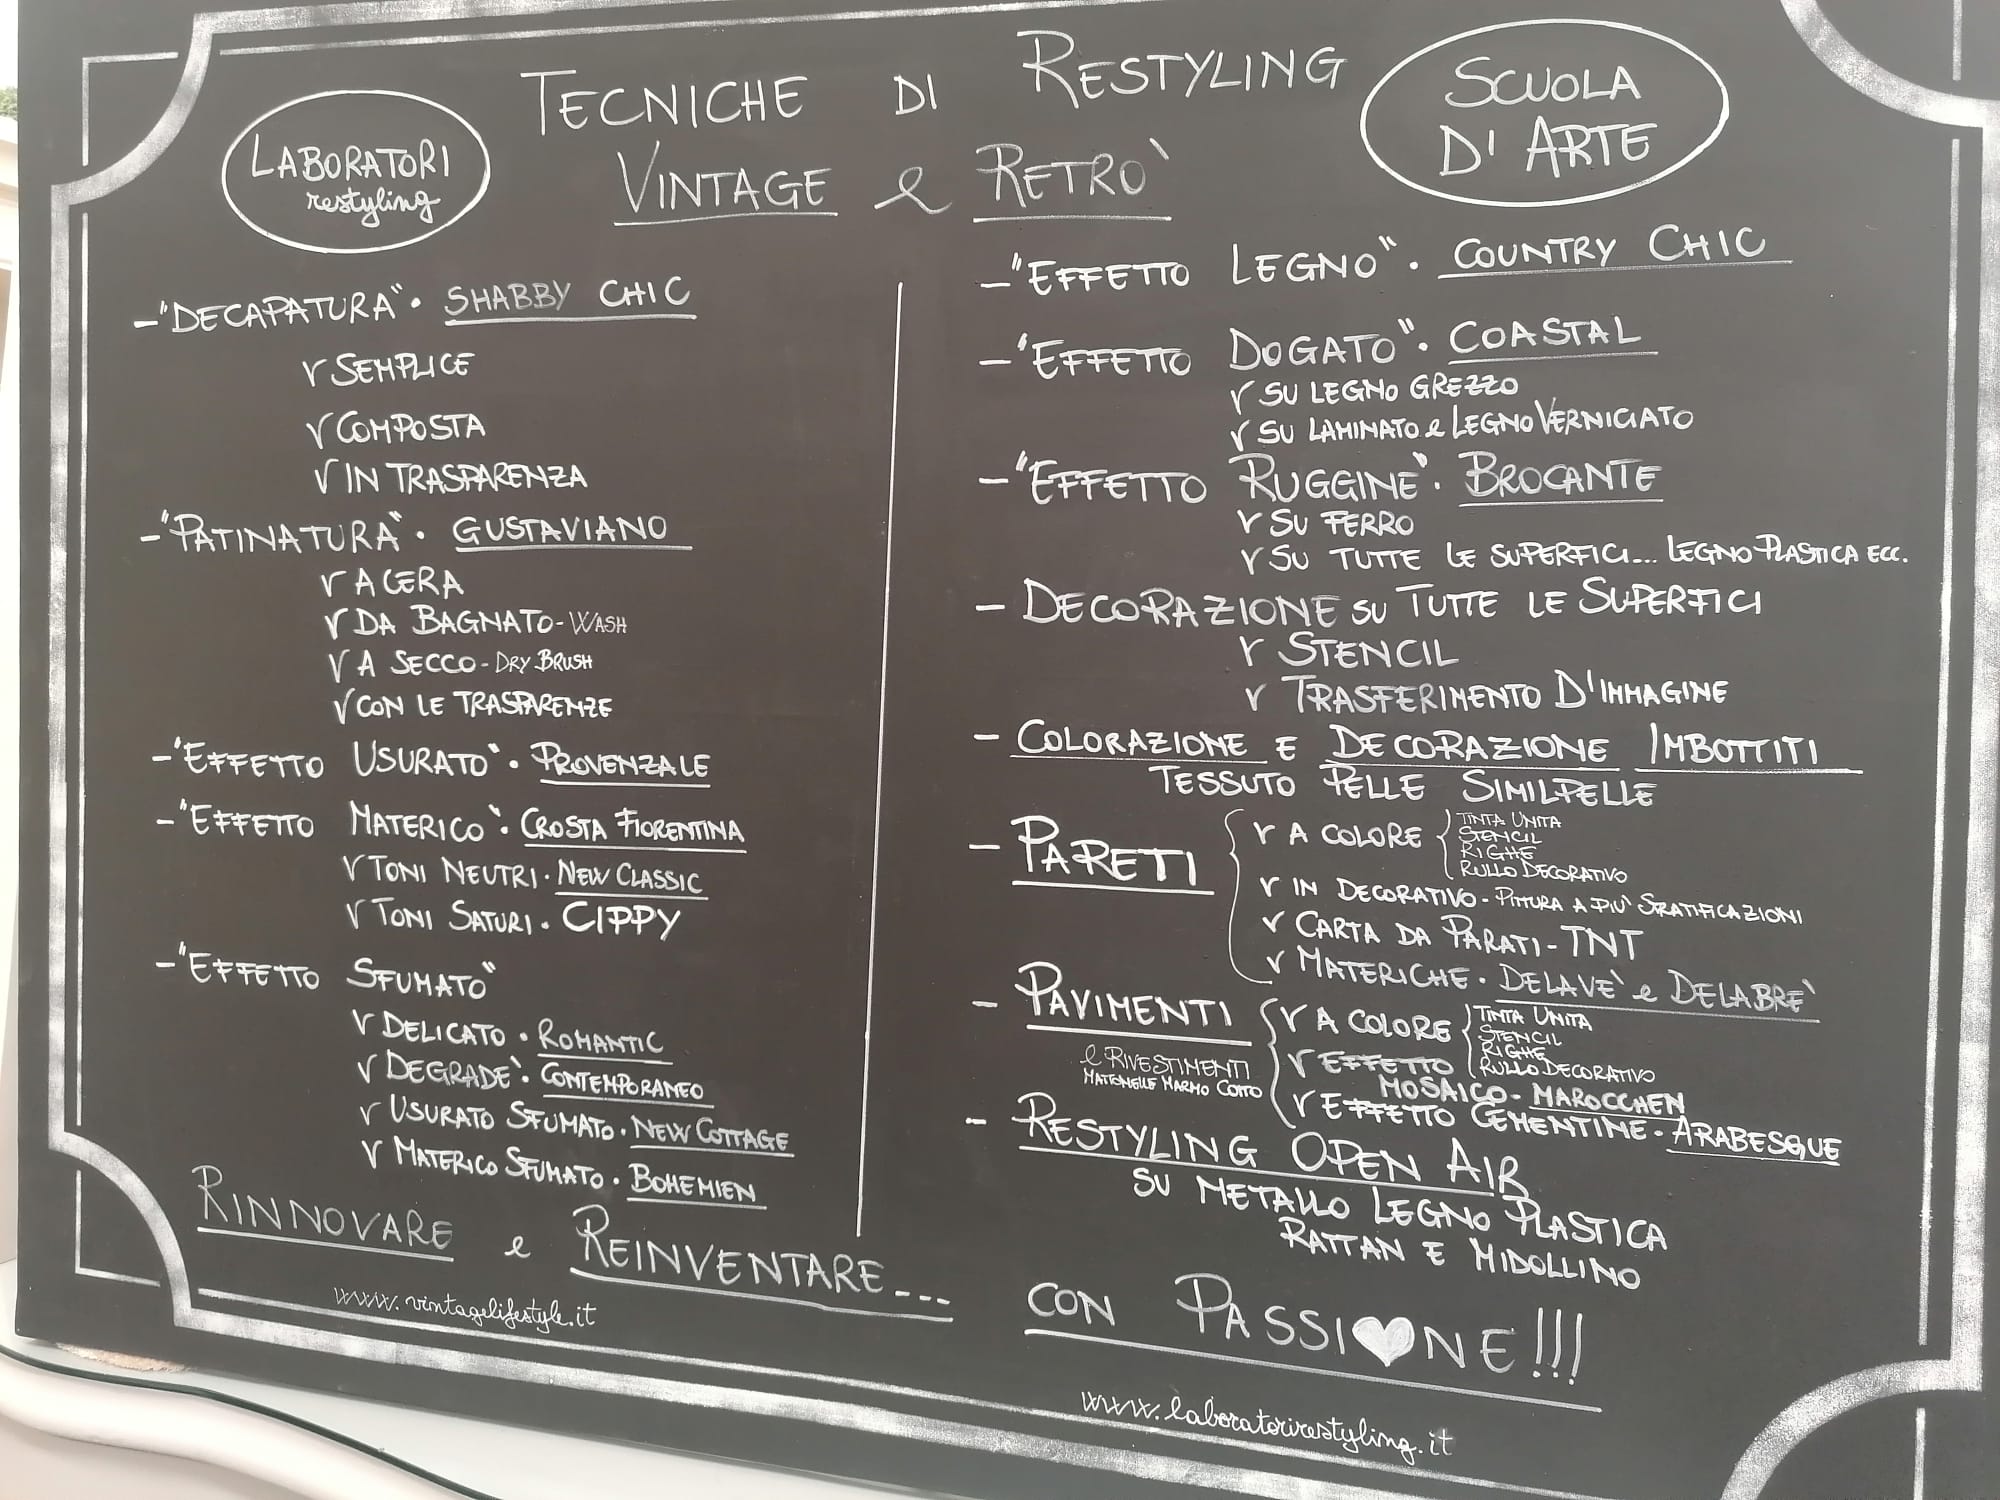 TECNICHE DI RESTYLING
VINTAGE e RETRO`
LABORATORI
restyling
SCUOLA
D'ARTE
- "DECAPATURA" · SHABBY CHIC
√ SEMPLICE
√ COMPOSTA
√ IN TRASPARENZA
- "PATINATURA" · GUSTAVIANO
√ A CERA
√ DA BAGNATO - WASH
√ A SECCO - DRY BRUSH
√ CON LE TRASPARENZE
- "EFFETTO USURATO" · PROVENZALE
- "EFFETTO MATERICO" · CROSTA FIORENTINA
√ TONI NEUTRI · NEW CLASSIC
√ TONI SATURI · CIPPY
- "EFFETTO SFUMATO"
√ DELICATO · ROMANTIC
√ DEGRADE` · CONTEMPORANEO
√ USURATO SFUMATO · NEW COTTAGE
√ MATERICO SFUMATO · BOHEMIEN
- "EFFETTO LEGNO" · COUNTRY CHIC
- "EFFETTO DOGATO" · COASTAL
√ SU LEGNO GREZZO
√ SU LAMINATO e LEGNO VERNICIATO
- "EFFETTO RUGGINE" · BROCANTE
√ SU FERRO
√ SU TUTTE LE SUPERFICI... LEGNO PLASTICA ECC.
- DECORAZIONE SU TUTTE LE SUPERFICI
√ STENCIL
√ TRASFERIMENTO D'IMMAGINE
- COLORAZIONE E DECORAZIONE IMBOTTITI
TESSUTO PELLE SIMILPELLE
- PARETI
√ A COLORE
TINTA UNITA
STENCIL
RIGHE
RULLO DECORATIVO
√ IN DECORATIVO - PITTURA A PIU` STRATIFICAZIONI
√ CARTA DA PARATI - TNT
√ MATERICHE · DELAVE` e DELABRE`
- PAVIMENTI
e RIVESTIMENTI
MATTONELLE MARMO COTTO
√ A COLORE
TINTA UNITA
STENCIL
RIGHE
RULLO DECORATIVO
√ EFFETTO
MOSAICO - MAROCCHEN
√ EFFETTO CEMENTINE · ARABESQUE
- RESTYLING OPEN AIR
SU METALLO LEGNO PLASTICA
RATTAN E MIDOLLINO
RINNOVARE e REINVENTARE...
CON PASSI♥NE!!!
www.vintagelifestyle.it
www.laboratorirestyling.it